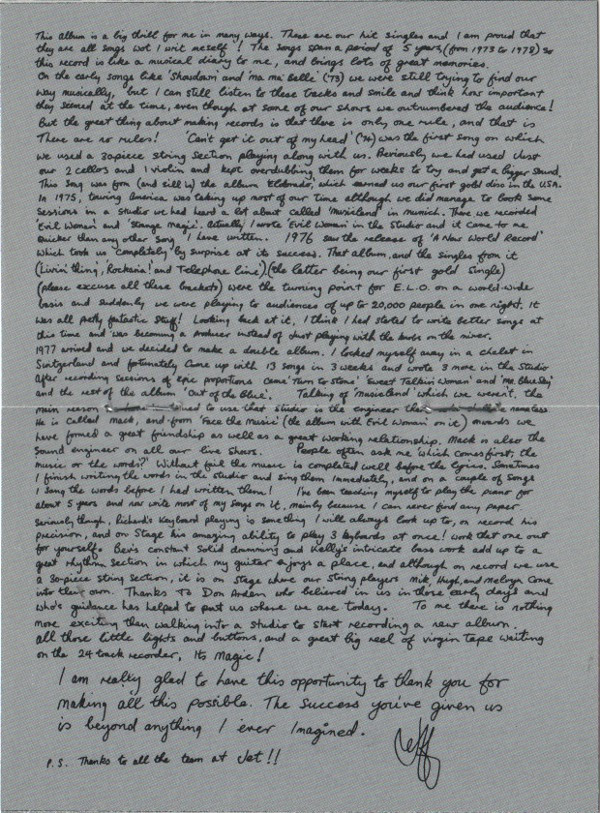 This album is a big thrill for me in many ways. These are our hit singles and I am proud that
they are all songs wot I writ meself! The songs span a period of 5 years, (from 1973 to 1978) so
this record is like a musical diary to me, and brings lots of great memories.
On the early songs like 'Showdown' and 'ma ma Belle' ('73) we were still trying to find our
way musically but I can still listen to these tracks and smile and think how important
they seemed at the time, even though at some of our shows we outnumbered the audience!
But the great thing about making records is that there is only one rule, and that is
There are no rules! 'Can't get it out of my head' ('74) was the first song on which
we used a 30 piece String Section playing along with us. Previously we had used Just
our 2 cellos and 1 violin and kept overdubbing them for weeks to try and get a bigger sound.
This Song was from (and still is) the album 'Eldorado', which earned us our first gold disc in the USA.
In 1975, touring America was taking up most of our time although we did manage to book some
Sessions in a studio we had heard a lot about called 'Musicland' in Munich. There we recorded
'Evil Woman' and 'Strange Magic'. Actually I wrote 'Evil Woman' in the studio and it came to me
Quicker than any other song I have written. 1976 saw the release of 'A New World Record'
which took us completely by surprise at its success. That album, and the singles from it
('Livin' thing', 'Rockaria!' and Telephone line') (the latter being our first gold single)
(please excuse all these brackets) were the turning point for E.L.O. on a world-wide
basis and suddenly we were playing to audiences of up to 20,000 people in one night. It
was all pretty fantastic Stuff! Looking back at it, I think I had started to write better songs at
this time and was becoming a Producer instead of Just playing with the knobs on the mixer.
1977 arrived and we decided to make a double album. I locked myself away in a chalet in
Switzerland and fortunately Came up with 13 songs in 3 weeks and wrote 3 more in the Studio
After recording sessions of epic proportions came 'Turn to Stone' 'Sweet Talkin Woman' and 'Mr. Blue Sky'
and the rest of the album 'Out of the Blue'. Talking of 'Musicland' which we weren't, the
main reason to use that Studio is the engineer nameless
He is called Mack, and from 'Face the Music' (the album with Evil Woman' on it) onwards we
have formed a great friendship as well as a great working relationship. Mack is also the
Sound engineer on all our live Shows. People often ask me 'which comes first, the
music or the words?' Without fail the music is completed well before the lyrics. Sometimes
I finish writing the words in the studio and sing them Immediately, and on a couple of songs
I sang the words before I had written them! I've been teaching myself to play the piano for
about 5 years and now write most of my songs on it, mainly because I can never find any paper.
Seriously though, Richard's Keyboard playing is something I will always look up to, on record his
precision, and on Stage his amazing ability to play 3 keyboards at once! Work that one out
for yourself. Bev's constant Solid drumming and Kelly's intricate bass work add up to a
great rhythm Section in which my guitar enjoys a place, and although on record we use
a 30-piece String Section, it is on Stage where our String players Mik, Hugh, and Melvyn Come
into their own. Thanks To Don Arden who believed in us in those early days and
who's guidance has helped to put us where we are today. To me there is nothing
more exciting than walking into a studio to start recording a new album.
all those little lights and buttons, and a great big reel of virgin tape waiting
on the 24 track recorder, Its Magic!
I am really glad to have this opportunity to thank you for
making all this possible. The Success you've given us
is beyond anything I ever Imagined.
Jeff
P.S. Thanks to all the team at Jet!!